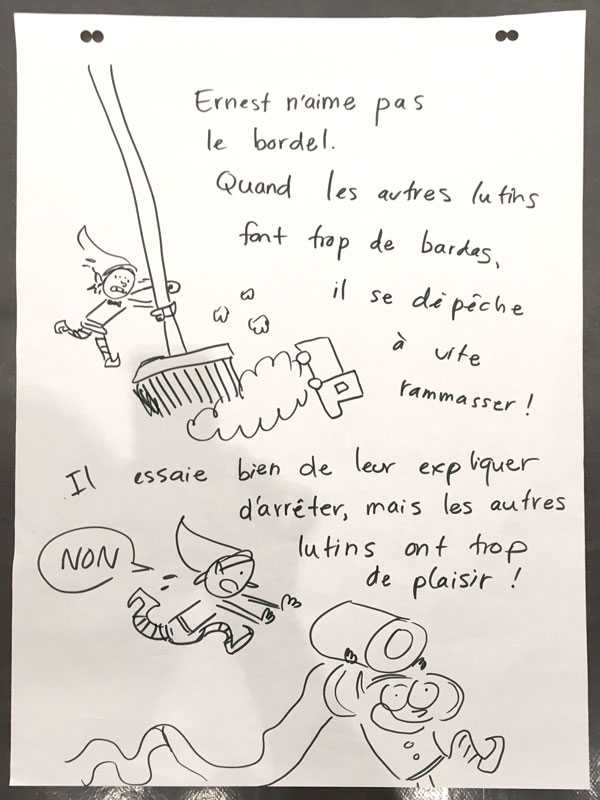 Ernest n'aime pas
le bordel.
Quand les autres lutins
font trop de bardas,
il se dépêche
à vite
rammasser !
Il essaie bien de leur expliquer
d'arrêter, mais les autres
lutins ont trop
de plaisir !
NON